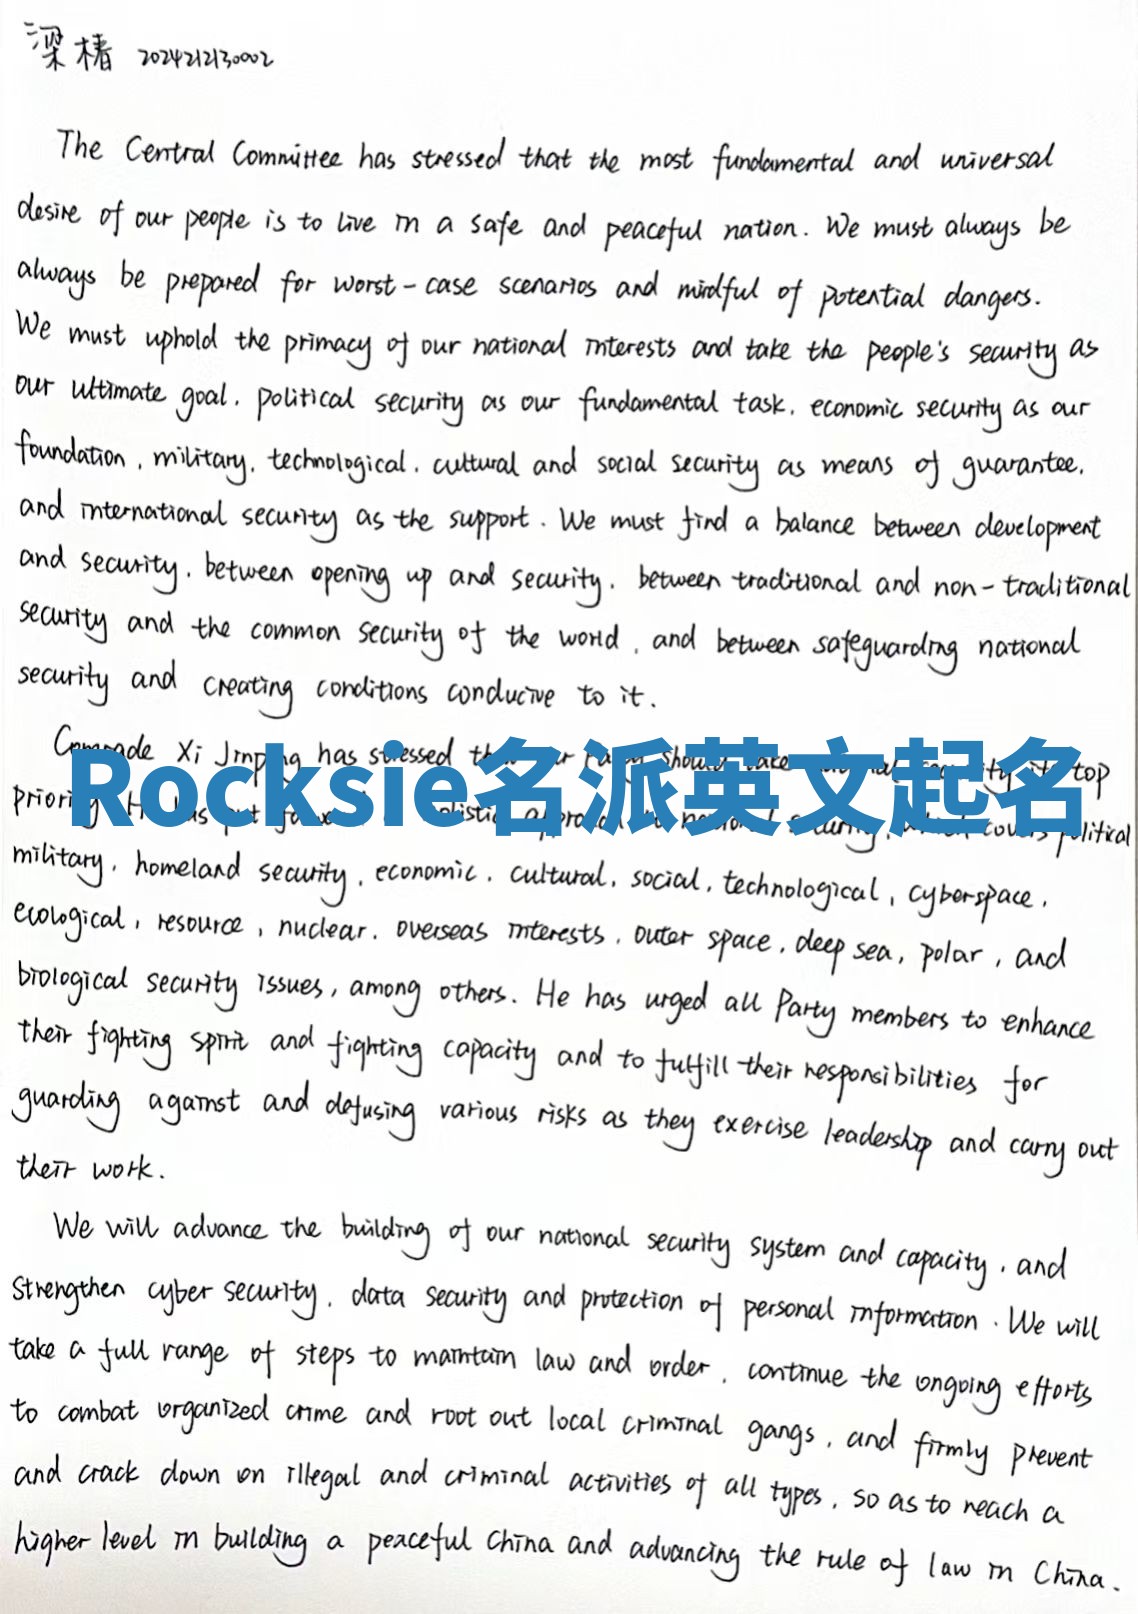 梁椿 2024212130002
The Central Committee has stressed that the most fundamental and universal
desire of our people is to live in a safe and peaceful nation. We must always be
always be prepared for worst-case scenarios and mindful of potential dangers.
We must uphold the primacy of our national interests and take the people's security as
our ultimate goal, political security as our fundamental task, economic security as our
foundation, military, technological, cultural and social security as means of guarantee,
and international security as the support. We must find a balance between development
and security, between opening up and security, between traditional and non-traditional
security and the common security of the world, and between safeguarding national
security and creating conditions conducive to it.
Comrade Xi Jinping has stressed should take top
Rocksie名派英文起名
priority put covers political
military, homeland security, economic, cultural, social, technological, cyberspace,
ecological, resource, nuclear, overseas interests, outer space, deep sea, polar, and
biological security issues, among others. He has urged all Party members to enhance
their fighting spirit and fighting capacity and to fulfill their responsibilities for
guarding against and defusing various risks as they exercise leadership and carry out
their work.
We will advance the building of our national security system and capacity, and
strengthen cyber security, data security and protection of personal information. We will
take a full range of steps to maintain law and order, continue the ongoing efforts
to combat organized crime and root out local criminal gangs, and firmly prevent
and crack down on illegal and criminal activities of all types, so as to reach a
higher level in building a peaceful China and advancing the rule of law in China.